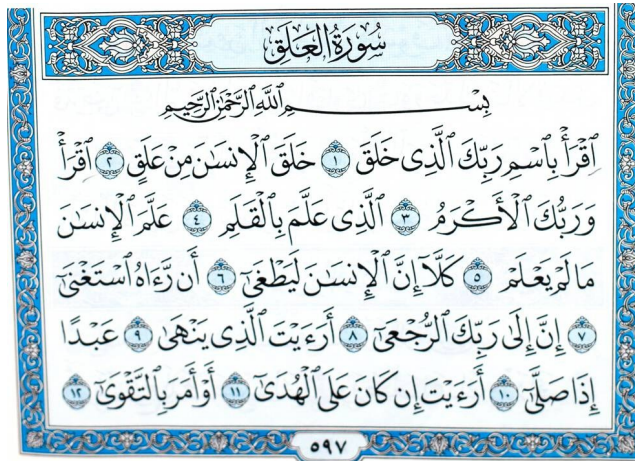 سُورَةُ الْعَلَقِ
بِسْمِ اللَّهِ الرَّحْمَٰنِ الرَّحِيمِ
ٱقْرَأْ بِٱسْمِ رَبِّكَ ٱلَّذِى خَلَقَ ١ خَلَقَ ٱلْإِنسَٰنَ مِنْ عَلَقٍ ٢ ٱقْرَأْ
وَرَبُّكَ ٱلْأَكْرَمُ ٣ ٱلَّذِى عَلَّمَ بِٱلْقَلَمِ ٤ عَلَّمَ ٱلْإِنسَٰنَ
مَا لَمْ يَعْلَمْ ٥ كَلَّآ إِنَّ ٱلْإِنسَٰنَ لَيَطْغَىٰٓ ٦ أَن رَّءَاهُ ٱسْتَغْنَىٰٓ
٧ إِنَّ إِلَىٰ رَبِّكَ ٱلرُّجْعَىٰٓ ٨ أَرَءَيْتَ ٱلَّذِى يَنْهَىٰ ٩ عَبْدًا
إِذَا صَلَّىٰٓ ١٠ أَرَءَيْتَ إِن كَانَ عَلَى ٱلْهُدَىٰٓ ١١ أَوْ أَمَرَ بِٱلتَّقْوَىٰٓ ١٢
٥٩٧